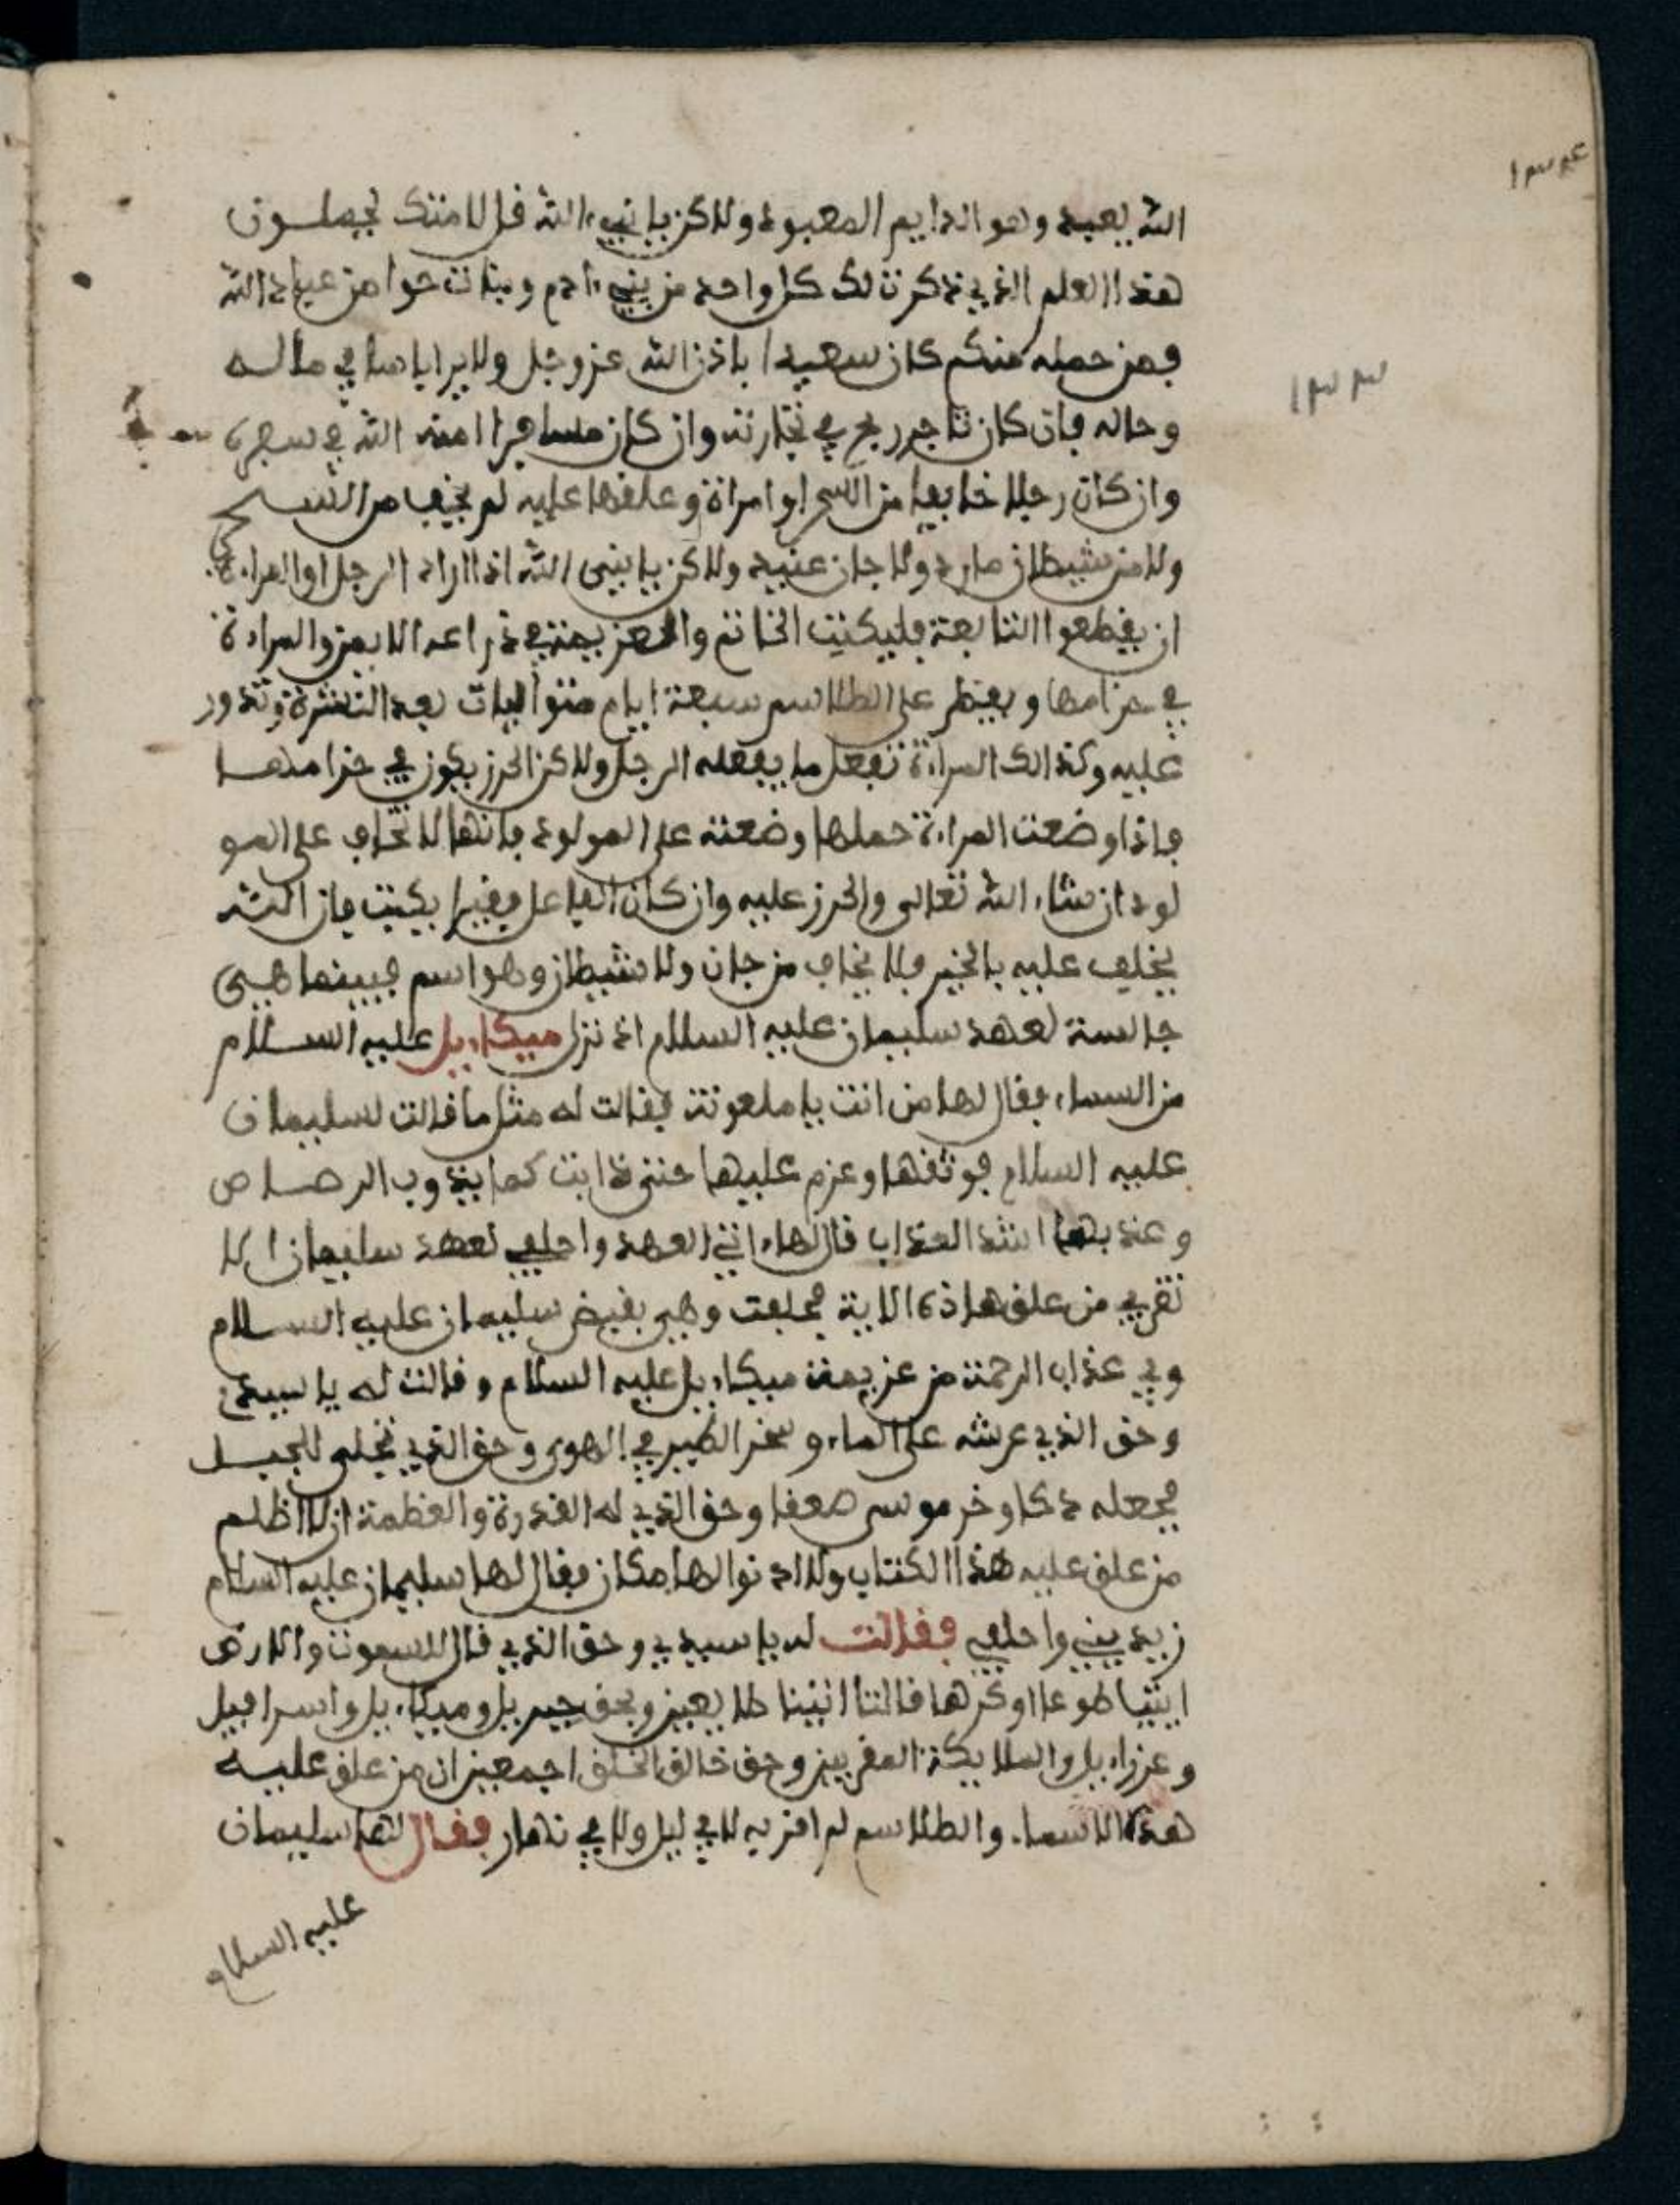 ١٣٤
١٣٣
الله يعيد وهو الدايم المعبود ولاكن يا نبيء الله قل لامتك يحملون
هذا العلم الذي ذكرت لك كل واحد من بنيء ادم وبنات حوا من عباد الله
فمن حمله منكم كان سعيدا باذن الله عز وجل ولا يرا باسا في ماله
وحاله فان كان تاجر ربح في تجارته وان كان مسافرا امنه الله في سفره
وان كان رجلا خايفا من السحر او امراة وعلقها عليه لم يخف من السحر
ولا من شيطان مارد ولا جان عنيد ولاكن يا نبيى الله اذا اراد الرجل او المراءة
ان يقطعوا التابعة فليكتب الخاتم والعزيمة في ذراعه الايمن والمراءة
في حزامها ويفطر على الطلاسم سبعة ايام متواليات بعد النشرة وتدور
عليه وكذالك المراءة تفعل ما يفعله الرجل ولاكن الحرز يكون في حزامها
فاذا وضعت المراءة حملها وضعته على المولود فانها لا تخاف على المو
لود ان شاء الله تعالى والحرز عليه وان كان الفاعل فقيرا يكتب فان الله
يخلف عليه بالخير فلا يخاف من جان ولا شيطان وهو اسم فبينما هيى
جالسة لعهد سليمان عليه السلام اذ نزل ميكاءيل عليه السلام
من السماء فقال لها من انت يا ملعونة فقالت له مثل ما قالت لسليمان
عليه السلام فوثقها وعزم عليها حتى ذابت كما يذوب الرصاص
وعذبها اشد العذاب قال لها اتي العهد واحلفي لعهد سليمان ان لا
تقربي من علق هاذه الاية فحلفت وهي بقبض سليمان عليه السلام
وفي عذاب الرحمة من عزيمة ميكاءيل عليه السلام وقالت له يا سيدي
وحق الذي عرشه على الماء وسخر الطير في الهوى وحق الذي تجلى للجبل
فجعله دكا وخر موسى صعقا وحق الذي له القدرة والعظمة ان لا اظلم
من علق عليه هذا الكتاب ولا ادنوا لها مكان فقال لها سليمان عليه السلام
زيديني واحلفي فقالت له يا سيدي وحق الذي قال للسموت والارض
ايتيا طوعا او كرها قالتا اتينا طايعين وبحق جبريل وميكاءيل واسرافيل
وعزراءيل والملايكة المقربين وحق خالق الخلق اجمعين ان من علق عليه
هذه الاسماء والطلاسم لم اقربه لا في ليل ولا في نهار فقال لها سليمان
عليه السلام